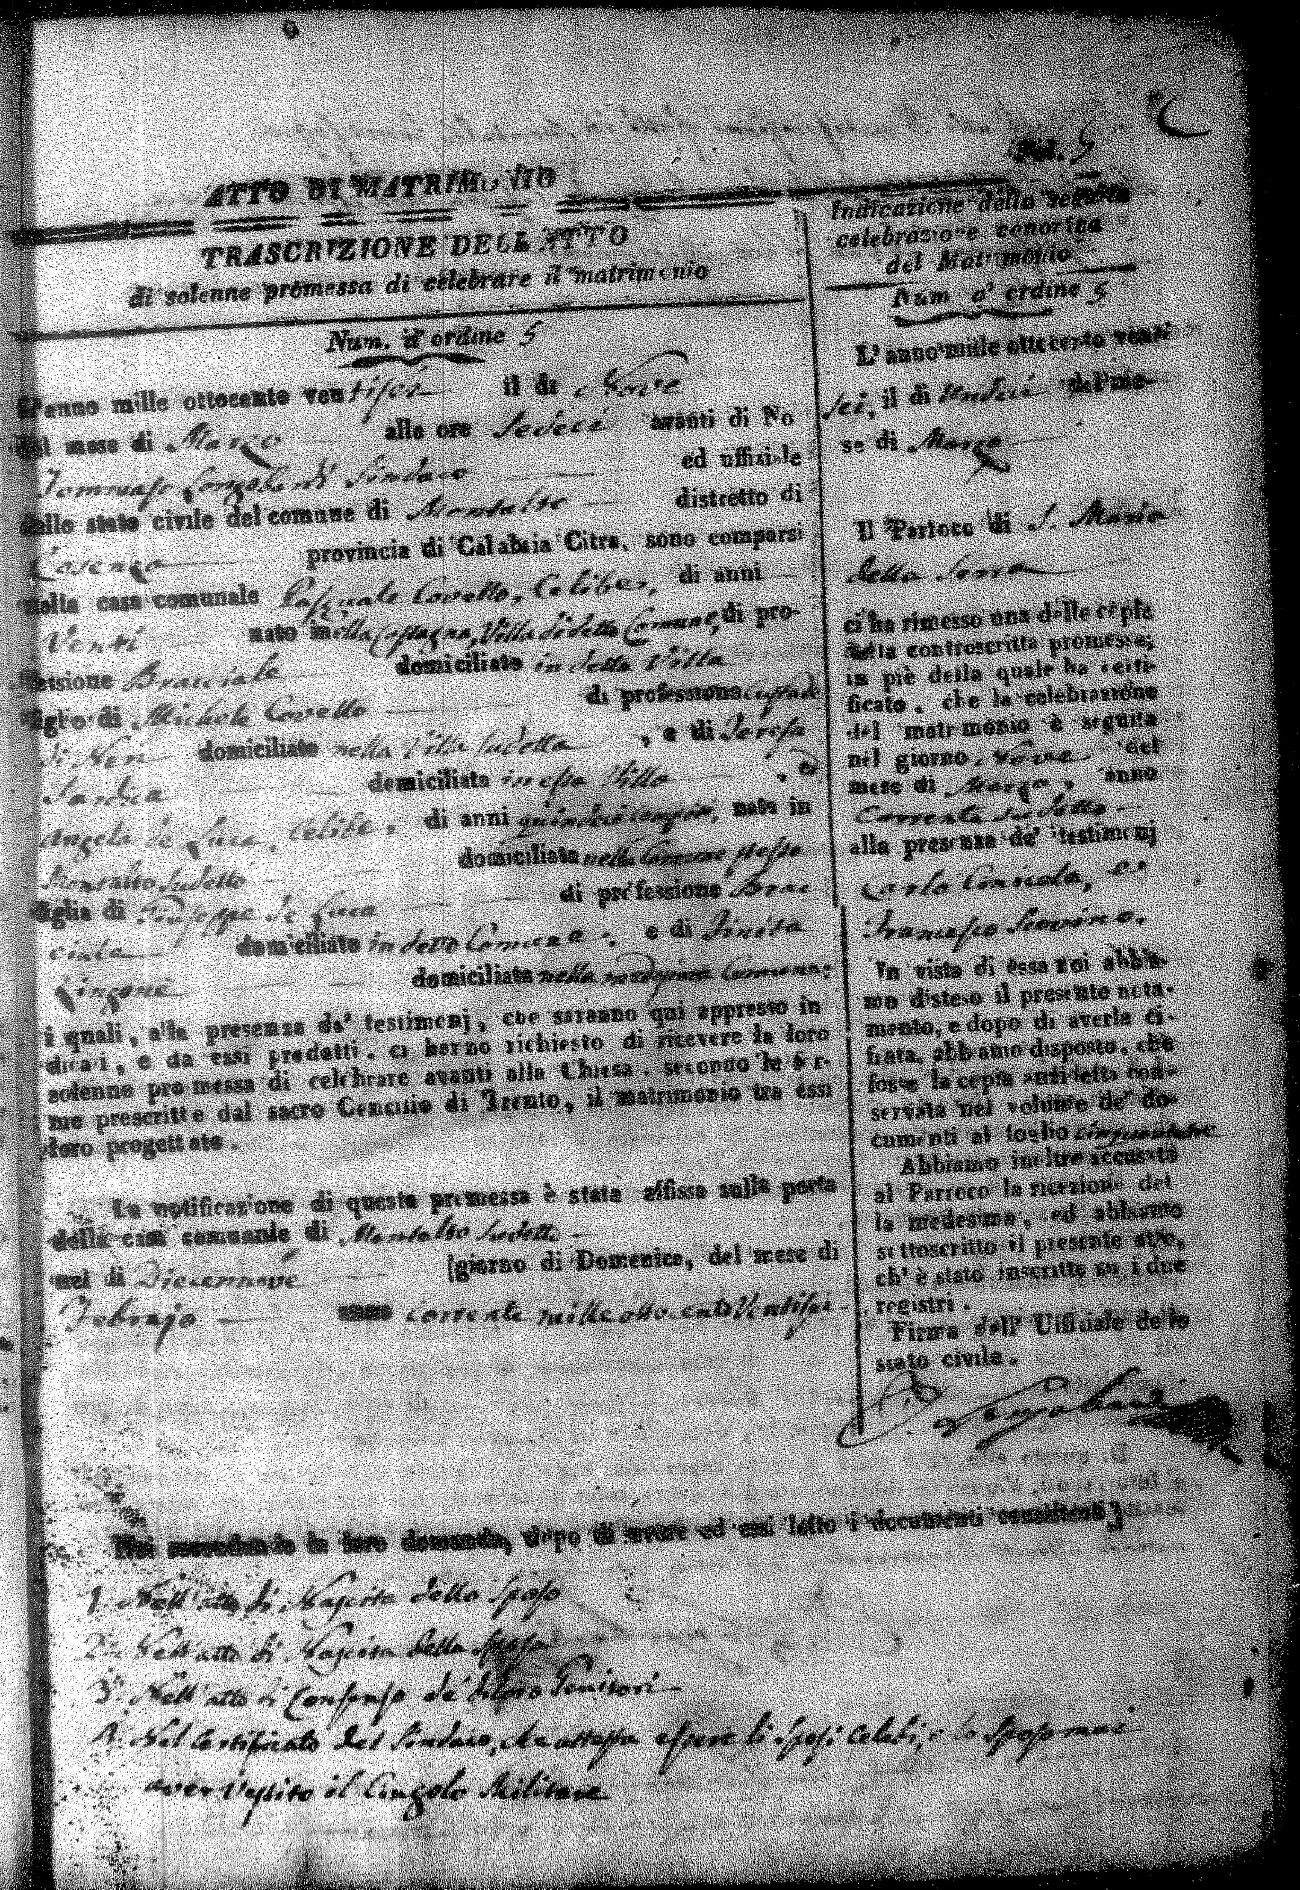 Fol. 5
ATTO DI MATRIMONIO
TRASCRIZIONE DELL'ATTO
di solenne promessa di celebrare il matrimonio
Num. d'ordine 5
L'anno mille ottocento ventisei il di Nove
del mese di Marzo alle ore Sedeci avanti di Noi
Tommaso Sindaco ed uffiziale
dello stato civile del comune di Montalto distretto di
Cosenza provincia di Calabria Citra, sono comparsi
nella casa comunale Pasquale Covello, Celibe, di anni
Venti nato nella Villa di detto Comune, di pro-
fessione Bracciale domiciliato in detta Villa
figlio di Michele Covello di professione
domiciliato nella Villa sudetta, e di Teresa
domiciliata in essa Villa, e
Angela de Luca, Celibe, di anni nata in
Montalto sudetto domiciliata nella Comune stessa
figlia di Giuseppe de Luca di professione Brac
ciale domiciliato in detto Comune, e di
domiciliata nella Comune;
i quali, alla presenza de' testimonj, che saranno qui appresso in
dicati, e da essi prodotti, ci hanno richiesto di ricevere la loro
solenne promessa di celebrare avanti alla Chiesa, secondo le for-
me prescritte dal sacro Concilio di Trento, il matrimonio tra essi
loro progettato.
La notificazione di questa promessa è stata affissa sulla porta
della casa comunale di Montalto sudetto
nel di Diecennove giorno di Domenica, del mese di
Febrajo anno corrente mille otto cento Ventisei
Indicazione della seguita
celebrazione canonica
del Matrimonio
Num. d'ordine 5
L'anno mille ottocento venti
sei, il di Undici del me-
se di Marzo
Il Parroco di S. Maria
della Serra
ci ha rimesso una delle copie
della controscritta promessa;
in piè della quale ha certi-
ficato, che la celebrazione
del matrimonio è seguita
nel giorno Nove del
mese di Marzo, anno
Corrente sudetto
alla presenza de' testimonj
Carlo, e
Francesco
In vista di essa noi abbia-
mo disteso il presente nota-
mento, e dopo di averla ci-
frata, abbiamo disposto, che
fosse la copia anzidetta con-
servata nel volume de' do-
cumenti al foglio
Abbiamo inoltre accusata
al Parroco la ricezione del
la medesima, ed abbiamo
sottoscritto il presente atto,
ch' è stato inscritto su i due
registri.
Firma dell' Uffiziale dello
stato civile.
Noi secondando la loro domanda, dopo di avere ad essi letto i documenti consistenti
1. Nell'atto di Nascita dello Sposo
2. Nell'atto di Nascita della Sposa
3. Nell'atto di Consenso de' di loro Genitori
4. Nel Certificato del Sindaco, che attesta essere li Sposi Celibi, e lo Sposo mai
aver Vestito il Cingolo Militare